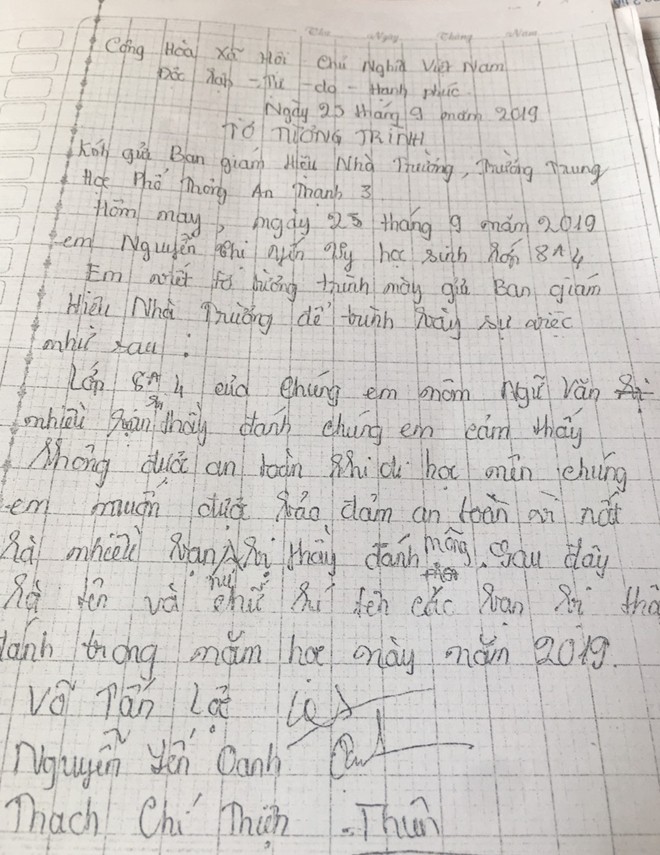 Thứ Ngày Tháng Năm
Cộng Hòa Xã Hội Chủ Nghĩa Việt Nam
Độc lập - Tự - do - Hạnh phúc
Ngày 25 tháng 9 năm 2019
TỜ TƯỜNG TRÌNH
Kính gửi Ban giám Hiệu Nhà Trường, Trường Trung
Học Phổ Thông An Thạnh 3
Hôm nay, ngày 25 tháng 9 năm 2019
em Nguyễn Thị Yến học sinh lớp 8A4
Em viết tờ tường trình này gửi Ban giám
Hiệu Nhà Trường để trình bày sự việc
như sau :
Lớp 8A4 của chúng em môn Ngữ Văn
nhiều bạn bị thầy đánh chúng em cảm thấy
không được an toàn khi đi học nên chúng
em muốn được bảo đảm an toàn vì rất
là nhiều bạn bị thầy đánh mông. sau đây
là tên và chữ kí tên các bạn bị thầ
đánh trong năm học này năm 2019.
Võ Tấn Lộc Lộc
Nguyễn Yến Oanh
Thạch Chí Thiện